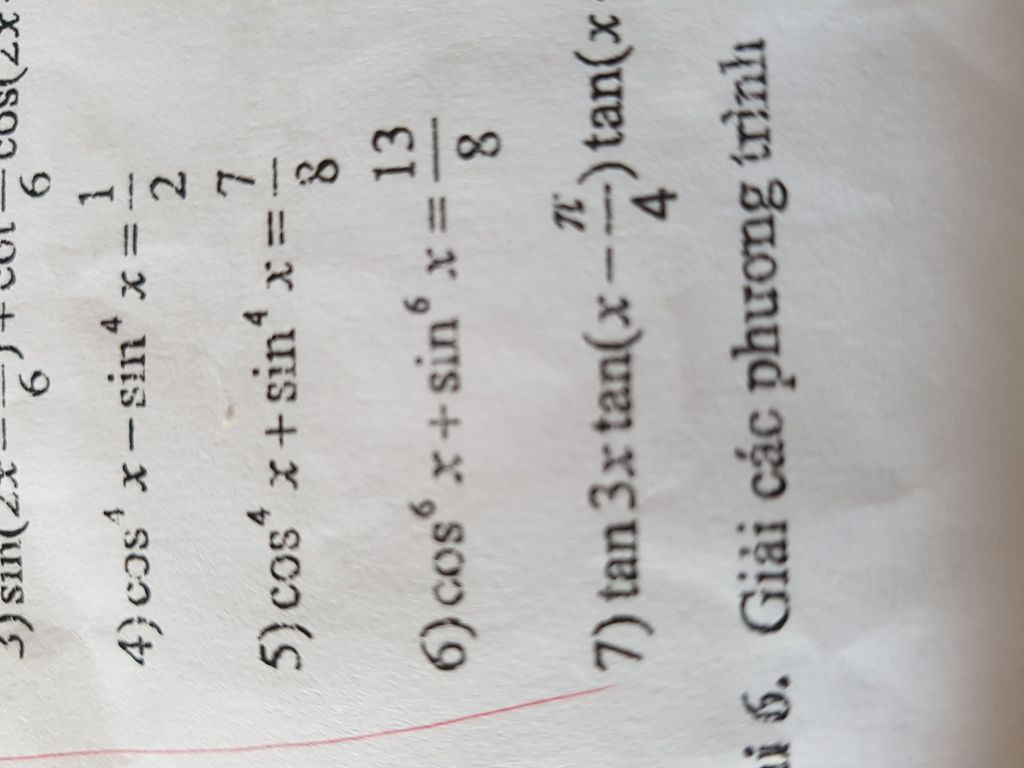 3) sin(2x − /6) + cot /6 cos(2x
4) cos⁴ x − sin⁴ x = 1/2
5) cos⁴ x + sin⁴ x = 7/8
6) cos⁶ x + sin⁶ x = 13/8
7) tan 3x tan(x − π/4) tan(x
6. Giải các phương trình